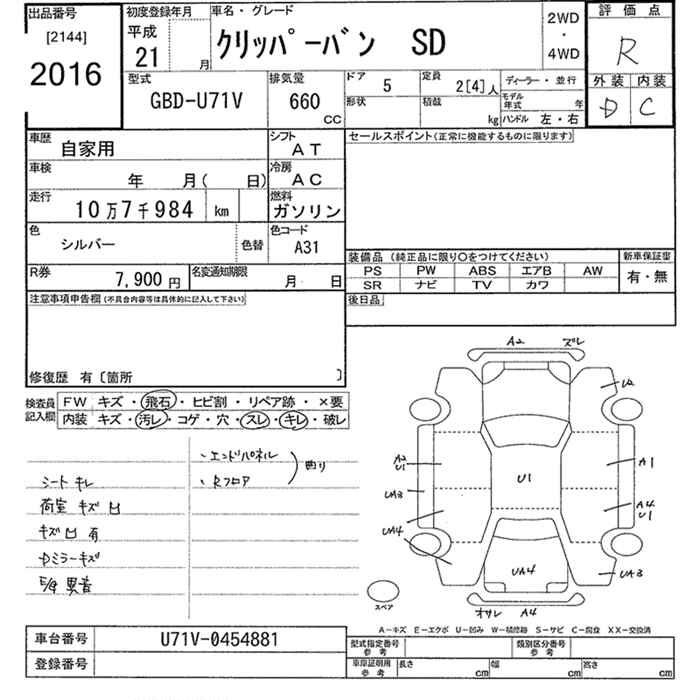 出品番号
[2144]
2016
初度登録年月
平成
21 月
車名・グレード
クリッパーバン SD
2WD
・
4WD
評価点
R
外装 内装
D C
型式
GBD-U71V
排気量
660
CC
ドア
5
形状
定員
2[4]人
積載
kg
ディーラー・並行
モデル
年式 年
ハンドル 左・右
車歴
自家用
シフト
AT
車検
年 月( 日)
冷房
AC
走行
10万7千984 km
燃料
ガソリン
色
シルバー
色替
色コード
A31
R券
7,900 円
名変通知期限
月 日
セールスポイント(正常に機能するものに限ります)
装備品 (純正品に限り○をつけてください)
PS PW ABS エアB AW
SR ナビ TV カワ
新車保証書
有・無
後日品
注意事項申告欄(不具合内容等は具体的に記入して下さい)
修復歴 有〔箇所 〕
検査員
記入欄
FW キズ・飛石・ヒビ割・リペア跡・×要
内装 キズ・汚レ・コゲ・穴・スレ・キレ・破レ
・エンドパネル
・Rフロア
曲り
シート キレ
荷室 キズ 凹
キズ 凹 有
Dミラーキズ
E/G 異音
A2 ズレ
U2
A2
U1
UA3
UA4
U1
A1
A4
U1
UA4
UA3
オサレ A4
スペア
A-キズ E-エクボ U-凹み W-補修跡 S-サビ C-腐食 XX-交換済
車台番号 U71V-0454881
登録番号
型式指定番号
参考
類別区分番号
参考
車庫証明用
参考
長さ cm
幅 cm
高さ cm